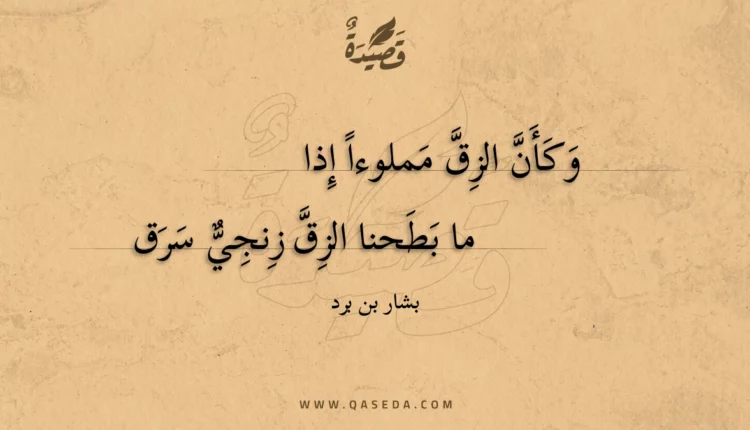 قَصِيْدَةٌ
وَكَأَنَّ الزِقَّ مَملوءاً إِذا
ما بَطَحنا الزِقَّ زِنجِيٌّ سَرَق
بشار بن برد
WWW.QASEDA.COM